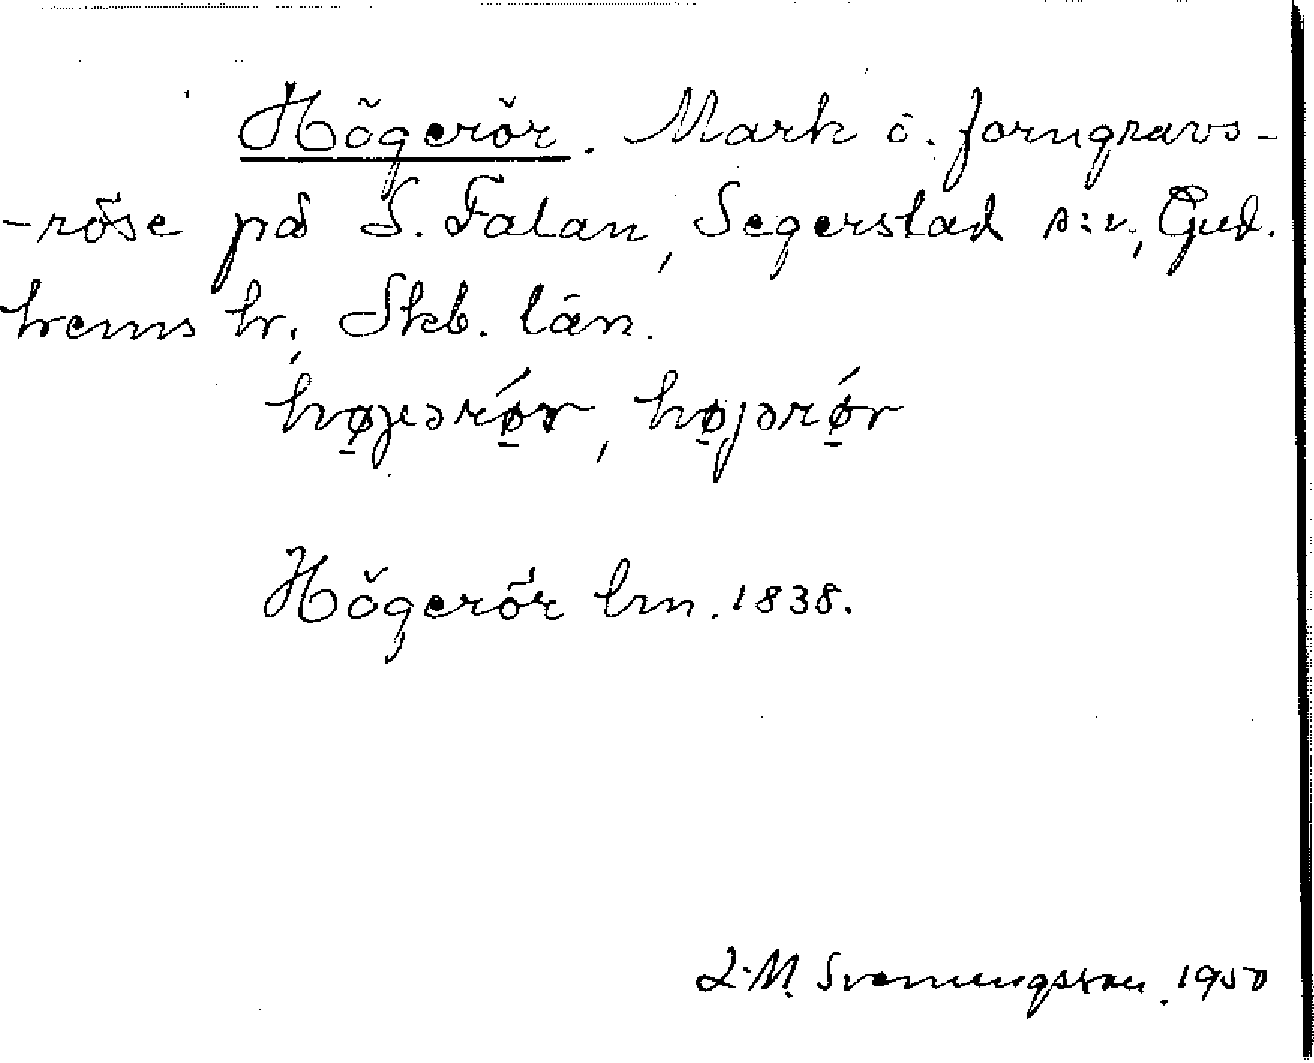 Högerör. Mark o. forngravs-
-röse på S. Falan, Segerstad s:n, Gud.
hems hr, Skb. län.
højerǿr, højərǿr
Högerör lm. 1838.
L.M. Svenungsson. 1950